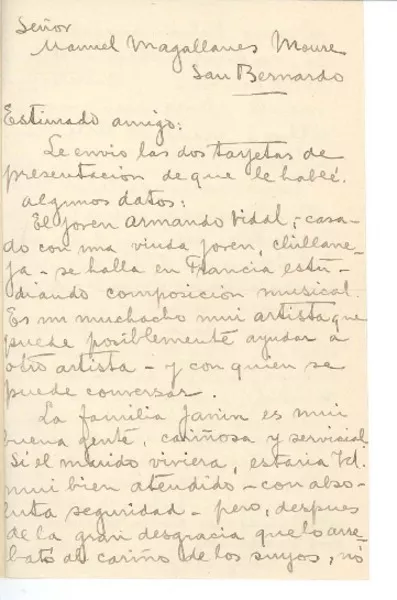 Señor
Manuel Magallanes Moure
San Bernardo
Estimado amigo:
Le envio las dos tarjetas de
presentación de que le hablé.
algunos datos:
El joven Armando Vidal, - casa-
do con una viuda joven, chillane-
ja - se halla en Francia estu-
diando composición musical.
Es un muchacho mui artista que
puede posiblemente ayudar a
otro artista - y con quien se
puede conversar.
La familia Janin es mui
buena gente, cariñosa y servicial.
Si el marido viviera, estaria Vd.
mui bien atendido - con abso-
luta seguridad - pero, despues
de la gran desgracia que lo arre-
bató al cariño de los suyos, nó